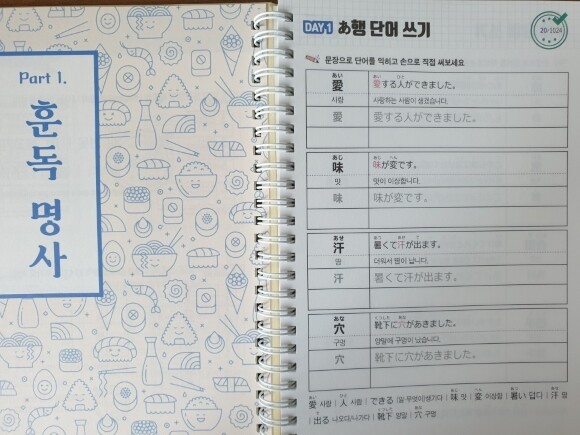 Part 1.
훈독 명사
DAY 1 あ행 단어 쓰기
20/1024
문장으로 단어를 익히고 손으로 직접 써보세요
あい あい ひと
愛 愛する人ができました。
사랑 사랑하는 사람이 생겼습니다.
愛 愛する人ができました。
あじ あじ へん
味 味が変です。
맛 맛이 이상합니다.
味 味が変です。
あせ あつ あせ で
汗 暑くて汗が出ます。
땀 더워서 땀이 납니다.
汗 暑くて汗が出ます。
あな くつした あな
穴 靴下に穴があきました。
구멍 양말에 구멍이 났습니다.
穴 靴下に穴があきました。
愛 사랑 | 人 사람 | できる (일·무엇이)생기다 | 味 맛 | 変 이상함 | 暑い 덥다 | 汗 땀
| 出る 나오다/나가다 | 靴下 양말 | 穴 구멍